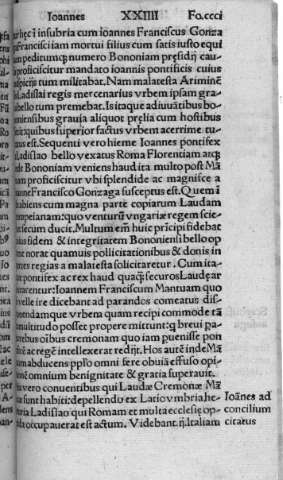 Ioannes XXIIII Fo.ccci
hęc ī insubria cum ioannes Franciscus Gonza
Francisci iam mortui filius cum satis iusto equi
peditumqȝ numero Bononiam pręsidij cau
proficiscitur mandato ioannis pontificis cuius
auspicijs tum militabat. Nam malatesta Ariminē
Ladislai regis mercenarius vrbem ipsam gra
bello tum premebat. Is itaque adiuuātibus bo
niensibus grauia aliquot pręlia cum hostibus
ex quibus superior factus vrbem acerrime tu
est. Sequenti vero hieme Ioannes pontifex
Ladislao bello vexatus Roma Florentiam atqȝ
Bononiam veniens haud ita multo post Mā
am proficiscitur vbi splendide ac magnifice a
Francisco Gonzaga susceptus est. Quem ī
habiens cum magna parte copiarum Laudam
mpeianam: quo venturū vngarię regem scie
secum ducit. Multum em̄ huic prīcipi fidebat
fidem & integritatem Bononiensi bello op
norat quamuis pollicitationibus & donis in
regias a malatesta solicitaretur. Cum ita
pontifex ac rex haud quaqȝ securos Laudę ar
rarentur: Ioannem Franciscum Mantuam quo
velle ire dicebant ad parandos comeatus dis
endamque vrbem quam recipi commode tā
multitudo posset propere mittunt: qȝ breui pa
oībus cremonam quo iam peruenisse pon
ac regē intellexerat redijt. Hos autē inde Mā
abducens ppl'o omni fere obuiā effuso opi
omnium benignitate & gratia superauit.
vero conuentibus qui Laudæ Cremonæ Mā
sunt habiti: depellendo ex Latio vmbria he
ria Ladislao qui Romam et multa ecclesię op
occupauerat est actum. Videbant.n. Italiam
Ioānes ad
concilium
citatus